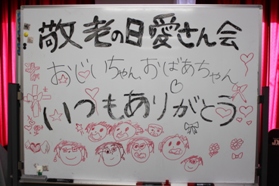 敬老の日愛さん会
おじいちゃん、おばあちゃん
いつもありがとう